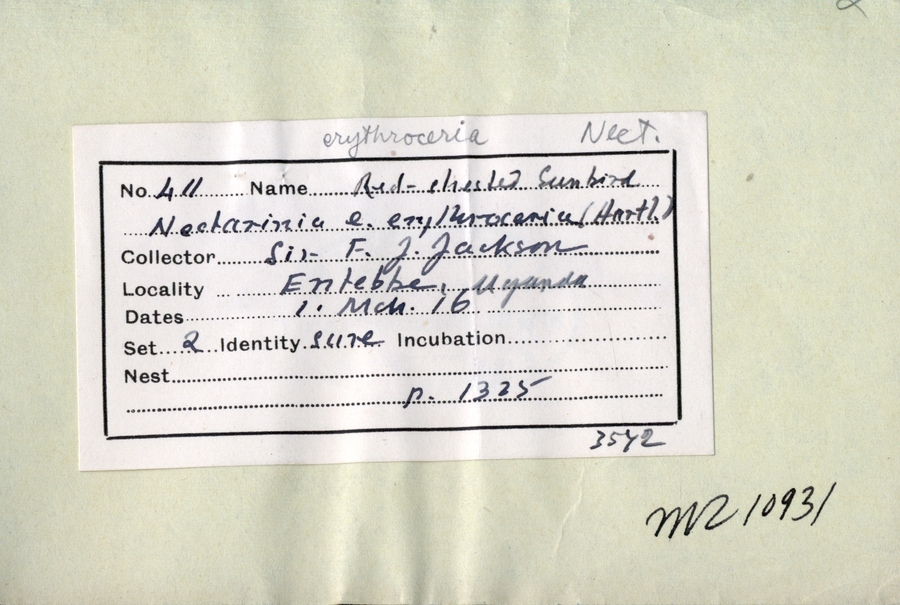 erythroceria Nect.
No. 411 Name Red-chested Sunbird
Nectarinia e. erythroceria (Hartl.)
Collector Sir F. J. Jackson
Locality Entebbe, Uganda
Dates 1. Mch. 16
Set 2 Identity sure Incubation
Nest
p. 1325
3542
MZ 10931